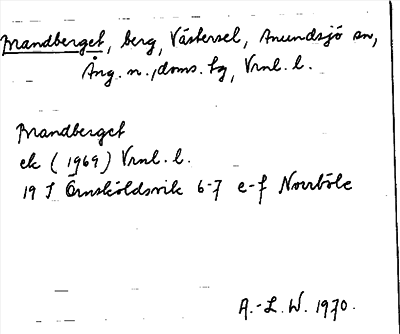 Brandberget, berg, Västersel, Anundsjö sn,
Ång. n., doms. tg, Vrnl. l.
Brandberget
ek (1969) Vrnl. l.
19 J Örnsköldsvik 6-7 e-f Norrböle
A.-L. W. 1970.